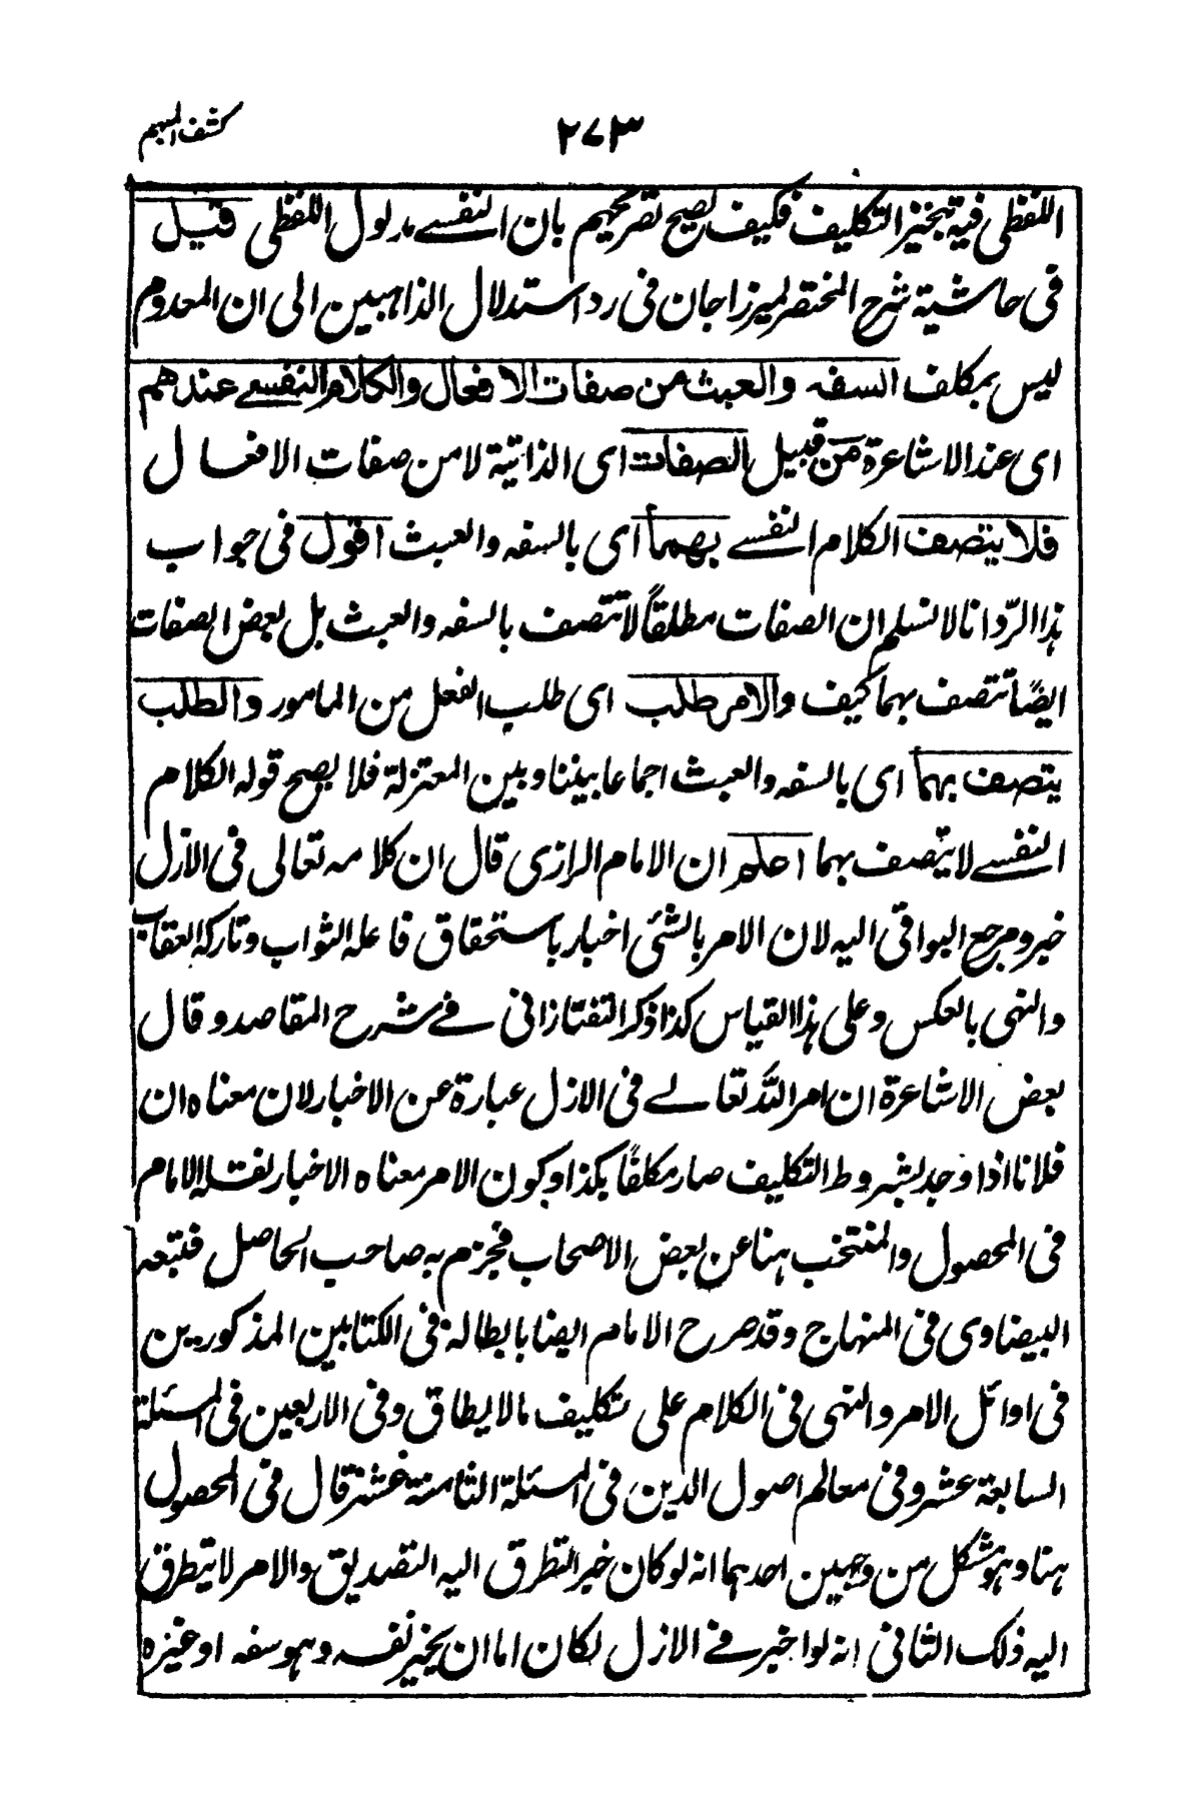 كشف المبهم
٢٧٣
اللفظي فيه تنجيز التكليف فكيف يصح تصريحهم بان النفسے مدلول اللفظي قيل
في حاشية شرح المختصر لميرزا جان في رد استدلال الذاهبين الى ان المعدوم
ليس بمكلف السفه والعبث من صفات الافعال والكلام النفسے عندهم
اى عند الاشاعرة من قبيل الصفات اى الذاتية لا من صفات الافعال
فلا يتصف الكلام النفسے بهما اى بالسفه والعبث اقول في جواب
هذا الرّد انا لا نسلم ان الصفات مطلقاً لا تتصف بالسفه والعبث بل بعض الصفات
ايضًا تتصف بهما كيف والامر طلب اى طلب الفعل من المامور والطلب
يتصف بهما اى بالسفه والعبث اجماعا بيننا وبين المعتزلة فلا يصح قوله الكلام
النفسے لا يتصف بهما اعلم ان الامام الرازى قال ان كلامه تعالى في الازل
خبر ومرجع البواقي اليه لان الامر بالشئ اخبار باستحقاق فاعله الثواب وتاركه العقاب
والنهى بالعكس وعلى هذا القياس كذا ذكر التفتازاني فے شرح المقاصد وقال
بعض الاشاعرة ان امر الله تعالے في الازل عبارة عن الاخبار لان معناه ان
فلانا اذا وجد بشروط التكليف صار مكلفًا بكذا وكون الامر معناه الاخبار نقله الامام
في المحصول والمنتخب هنا عن بعض الاصحاب فجزم به صاحب الحاصل فتبعه
البيضاوى في المنهاج وقد صرح الامام ايضا بابطاله في الكتابين المذكورين
في اوائل الامر والنهى في الكلام على تكليف مالايطاق وفي الاربعين في المسئلة
السابعة عشر وفي معالم اصول الدين في المسئلة الثامنة عشر قال في المحصول
هنا وهو مشكل من وجهين احدهما انه لو كان خبرا لتطرق اليه التصديق والامر لا يتطرق
اليه ذلك الثاني انه لو اخبر فے الازل لكان اما ان يخبر نفسه وهو سفه او غيره